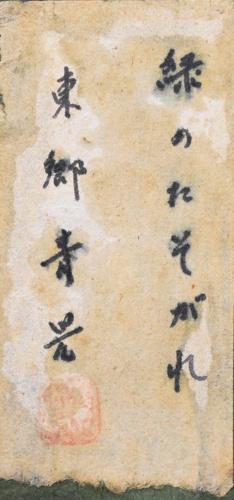 緑のたそがれ
東郷青児